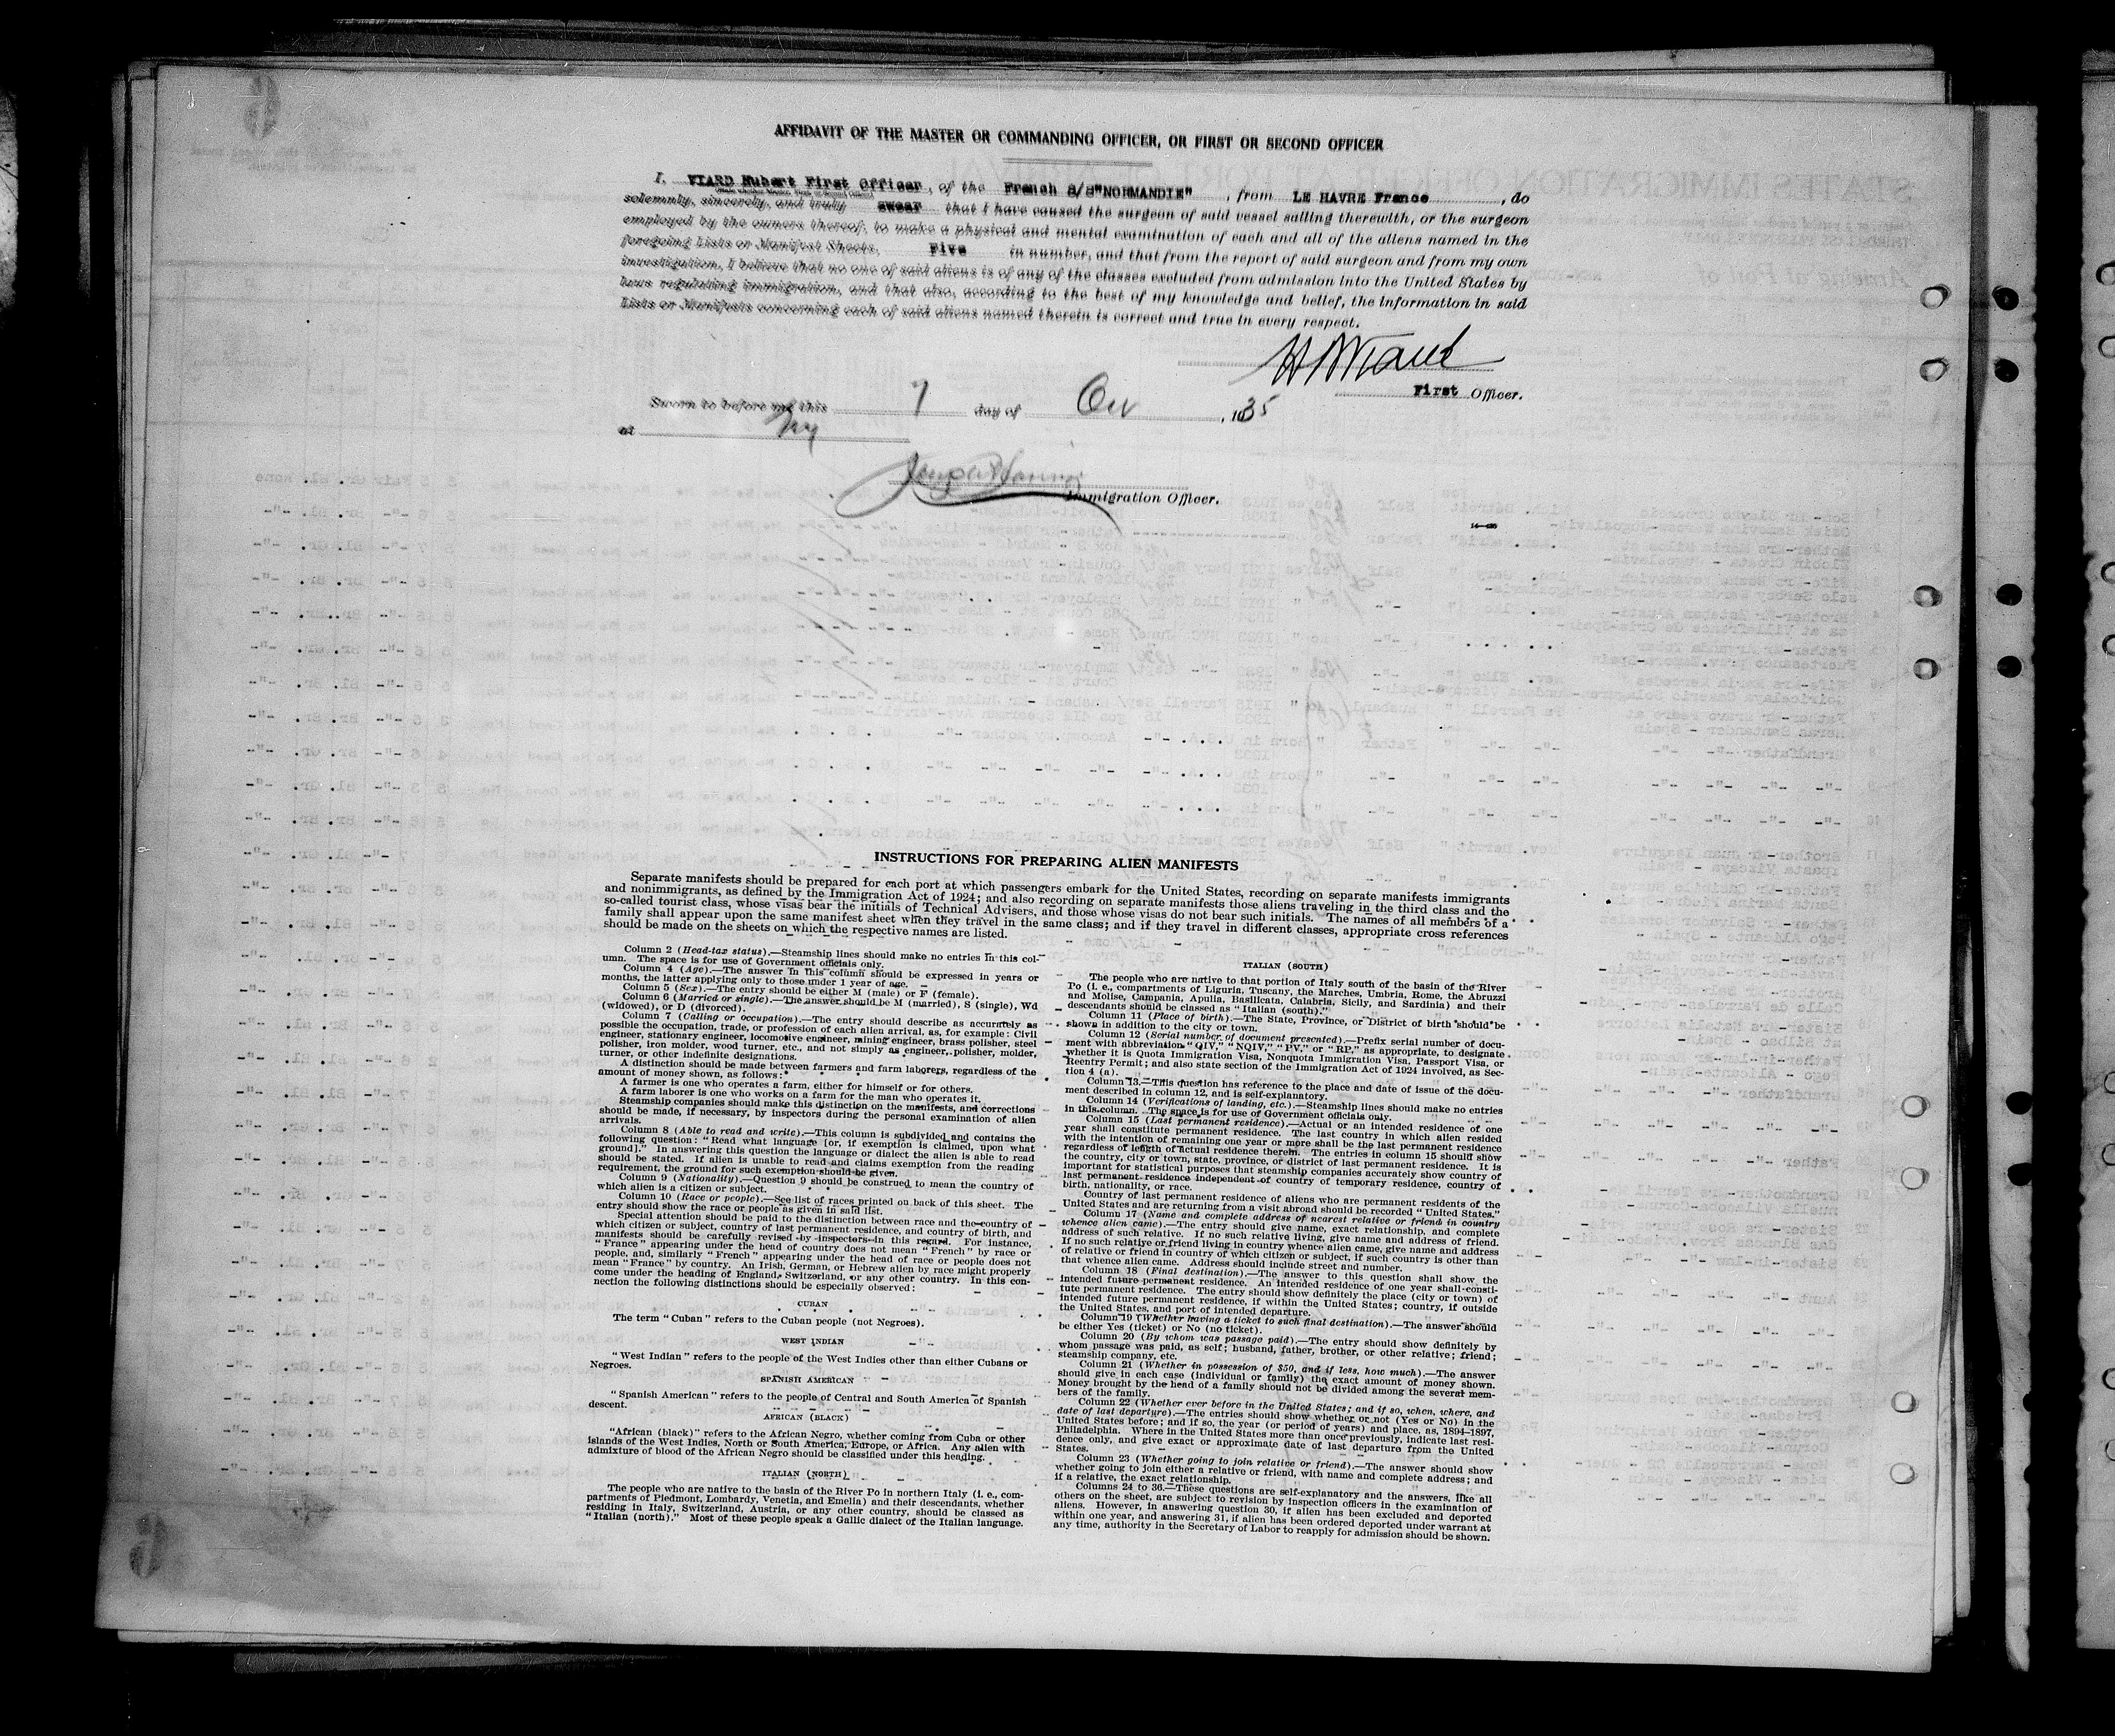 AFFIDAVIT OF THE MASTER OR COMMANDING OFFICER, OR FIRST OR SECOND OFFICER
I, VIARD Hubert First Officer, of the French S/S"NORMANDIE", from LE HAVRE France, do
solemnly, sincerely, and truly swear that I have caused the surgeon of said vessel sailing therewith, or the surgeon
employed by the owners thereof, to make a physical and mental examination of each and all of the aliens named in the
foregoing Lists or Manifest Sheets, Five in number, and that from the report of said surgeon and from my own
investigation, I believe that no one of said aliens is of any of the classes excluded from admission into the United States by
laws regulating immigration, and that also, according to the best of my knowledge and belief, the information in said
Lists or Manifests concerning each of said aliens named therein is correct and true in every respect.
First Officer.
Sworn to before me this 7 day of Oct, 1935
at NY
Immigration Officer.
INSTRUCTIONS FOR PREPARING ALIEN MANIFESTS
Separate manifests should be prepared for each port at which passengers embark for the United States, recording on separate manifests immigrants
and nonimmigrants, as defined by the Immigration Act of 1924; and also recording on separate manifests those aliens traveling in the third class and the
so-called tourist class, whose visas bear the initials of Technical Advisers, and those whose visas do not bear such initials. The names of all members of a
family shall appear upon the same manifest sheet when they travel in the same class; and if they travel in different classes, appropriate cross references
should be made on the sheets on which the respective names are listed.
Column 2 (Head-tax status).—Steamship lines should make no entries in this col-
umn. The space is for use of Government officials only.
Column 4 (Age).—The answer in this column should be expressed in years or
months, the latter applying only to those under 1 year of age.
Column 5 (Sex).—The entry should be either M (male) or F (female).
Column 6 (Married or single).—The answer should be M (married), S (single), Wd
(widowed), or D (divorced).
Column 7 (Calling or occupation).—The entry should describe as accurately as
possible the occupation, trade, or profession of each alien arrival, as, for example: Civil
engineer, stationary engineer, locomotive engineer, mining engineer, brass polisher, steel
polisher, iron molder, wood turner, etc., and not simply as engineer, polisher, molder,
turner, or other indefinite designations.
A distinction should be made between farmers and farm laborers, regardless of the
amount of money shown, as follows:
A farmer is one who operates a farm, either for himself or for others.
A farm laborer is one who works on a farm for the man who operates it.
Steamship companies should make this distinction on the manifests, and corrections
should be made, if necessary, by inspectors during the personal examination of alien
arrivals.
Column 8 (Able to read and write).—This column is subdivided and contains the
following question: "Read what language [or, if exemption is claimed, upon what
ground]." In answering this question the language or dialect the alien is able to read
should be stated. If alien is unable to read and claims exemption from the reading
requirement, the ground for such exemption should be given.
Column 9 (Nationality).—Question 9 should be construed to mean the country of
which alien is a citizen or subject.
Column 10 (Race or people).—See list of races printed on back of this sheet. The
entry should show the race or people as given in said list.
Special attention should be paid to the distinction between race and the country of
which citizen or subject, country of last permanent residence, and country of birth, and
manifests should be carefully revised by inspectors in this regard. For instance,
"France" appearing under the head of country does not mean "French" by race or
people, and, similarly "French" appearing under the head of race or people does not
mean "France" by country. An Irish, German, or Hebrew alien by race might properly
come under the heading of England, Switzerland, or any other country. In this con-
nection the following distinctions should be especially observed:
CUBAN
The term "Cuban" refers to the Cuban people (not Negroes).
WEST INDIAN
"West Indian" refers to the people of the West Indies other than either Cubans or
Negroes.
SPANISH AMERICAN
"Spanish American" refers to the people of Central and South America of Spanish
descent.
AFRICAN (BLACK)
"African (black)" refers to the African Negro, whether coming from Cuba or other
islands of the West Indies, North or South America, Europe, or Africa. Any alien with
admixture of blood of the African Negro should be classified under this heading.
ITALIAN (NORTH)
The people who are native to the basin of the River Po in northern Italy (i. e., com-
partments of Piedmont, Lombardy, Venetia, and Emelia) and their descendants, whether
residing in Italy, Switzerland, Austria, or any other country, should be classed as
"Italian (north)." Most of these people speak a Gallic dialect of the Italian language.
ITALIAN (SOUTH)
The people who are native to that portion of Italy south of the basin of the River
Po (i. e., compartments of Liguria, Tuscany, the Marches, Umbria, Rome, the Abruzzi
and Molise, Campania, Apulia, Basilicata, Calabria, Sicily, and Sardinia) and their
descendants should be classed as "Italian (south)."
Column 11 (Place of birth).—The State, Province, or District of birth should be
shown in addition to the city or town.
Column 12 (Serial number of document presented).—Prefix serial number of docu-
ment with abbreviation "QIV," "NQIV," "PV," or "RP," as appropriate, to designate
whether it is Quota Immigration Visa, Nonquota Immigration Visa, Passport Visa, or
Reentry Permit; and also state section of the Immigration Act of 1924 involved, as Sec-
tion 4 (a).
Column 13.—This question has reference to the place and date of issue of the docu-
ment described in column 12, and is self-explanatory.
Column 14 (Verifications of landing, etc.).—Steamship lines should make no entries
in this column. The space is for use of Government officials only.
Column 15 (Last permanent residence).—Actual or an intended residence of one
year shall constitute permanent residence. The last country in which alien resided
with the intention of remaining one year or more shall be the last permanent residence
regardless of length of actual residence therein. The entries in column 15 should show
the country, city or town, state, province, or district of last permanent residence. It is
important for statistical purposes that steamship companies accurately show country of
last permanent residence independent of country of temporary residence, country of
birth, nationality, or race.
Country of last permanent residence of aliens who are permanent residents of the
United States and are returning from a visit abroad should be recorded "United States."
Column 17 (Name and complete address of nearest relative or friend in country
whence alien came).—The entry should give name, exact relationship, and complete
address of such relative. If no such relative living, give name and address of friend.
If no such relative or friend living in country whence alien came, give name and address
of relative or friend in country of which citizen or subject, if such country is other than
that whence alien came. Address should include street and number.
Column 18 (Final destination).—The answer to this question shall show the
intended future permanent residence. An intended residence of one year shall consti-
tute permanent residence. The entry should show definitely the place (city or town) of
intended future permanent residence, if within the United States; country, if outside
the United States, and port of intended departure.
Column 19 (Whether having a ticket to such final destination).—The answer should
be either Yes (ticket) or No (no ticket).
Column 20 (By whom was passage paid).—The entry should show definitely by
whom passage was paid, as self; husband, father, brother, or other relative; friend;
steamship company, etc.
Column 21 (Whether in possession of $50, and if less, how much).—The answer
should give in each case (individual or family) the exact amount of money shown.
Money brought by the head of a family should not be divided among the several mem-
bers of the family.
Column 22 (Whether ever before in the United States; and if so, when, where, and
date of last departure).—The entries should show whether or not (Yes or No) in the
United States before; and if so, the year (or period of years) and place, as, 1894–1897,
Philadelphia. Where in the United States more than once previously, indicate last resi-
dence only, and give exact or approximate date of last departure from the United
States.
Column 23 (Whether going to join relative or friend).—The answer should show
whether going to join either a relative or friend, with name and complete address; and
if a relative, the exact relationship.
Columns 24 to 36.—These questions are self-explanatory and the answers, like all
others on the sheet, are subject to revision by inspection officers in the examination of
aliens. However, in answering question 30, if alien has been excluded and deported
within one year, and answering 31, if alien has been ordered deported under warrant at
any time, authority in the Secretary of Labor to reapply for admission should be shown.